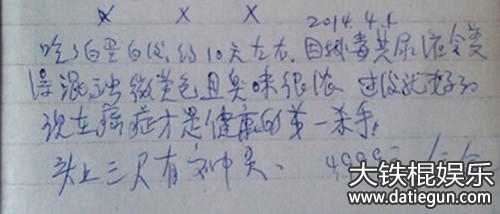 x x x 2014.4.1
吃了白蛋白后, 约10天左右, 因排毒其尿液会变
得混浊微黄色且臭味很浓 过后就好了
现在癌症才是健康的第一杀手,
头上三尺有神灵、
大铁棍娱乐
www.datiegun.com